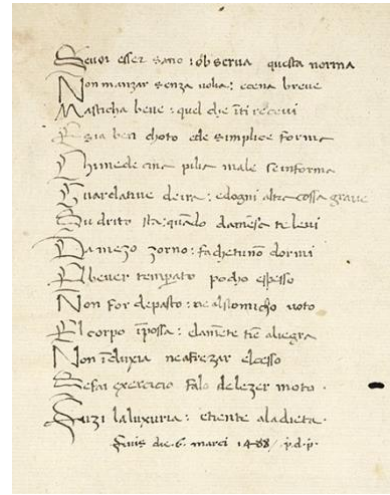 Sevoi esser sano : observa questa norma
Non manzar senza volia : e cena breve
Masticha bene : quel che ĩti recevi
E sia ben choto e de simplice forma
Chi medecina pilia male se informa
Guardative de ira : e dogni altra cossa grave
Su drito sta : quãdo da mẽsa te levi
Da mezo zorno : fa che tu nõ dormi
El bever temperato pocho e spesso
Non for de pasto : ne al stomicho voto
El corpo ĩ possa : e la mẽte tiẽ alegra
Non ne afrezar el cesso
Se fai exercicio falo de lezer moto .
Fuzi la luxuria : e tiente a la dieta .
Finis die . 6 . marci 1488 / p . d . p .